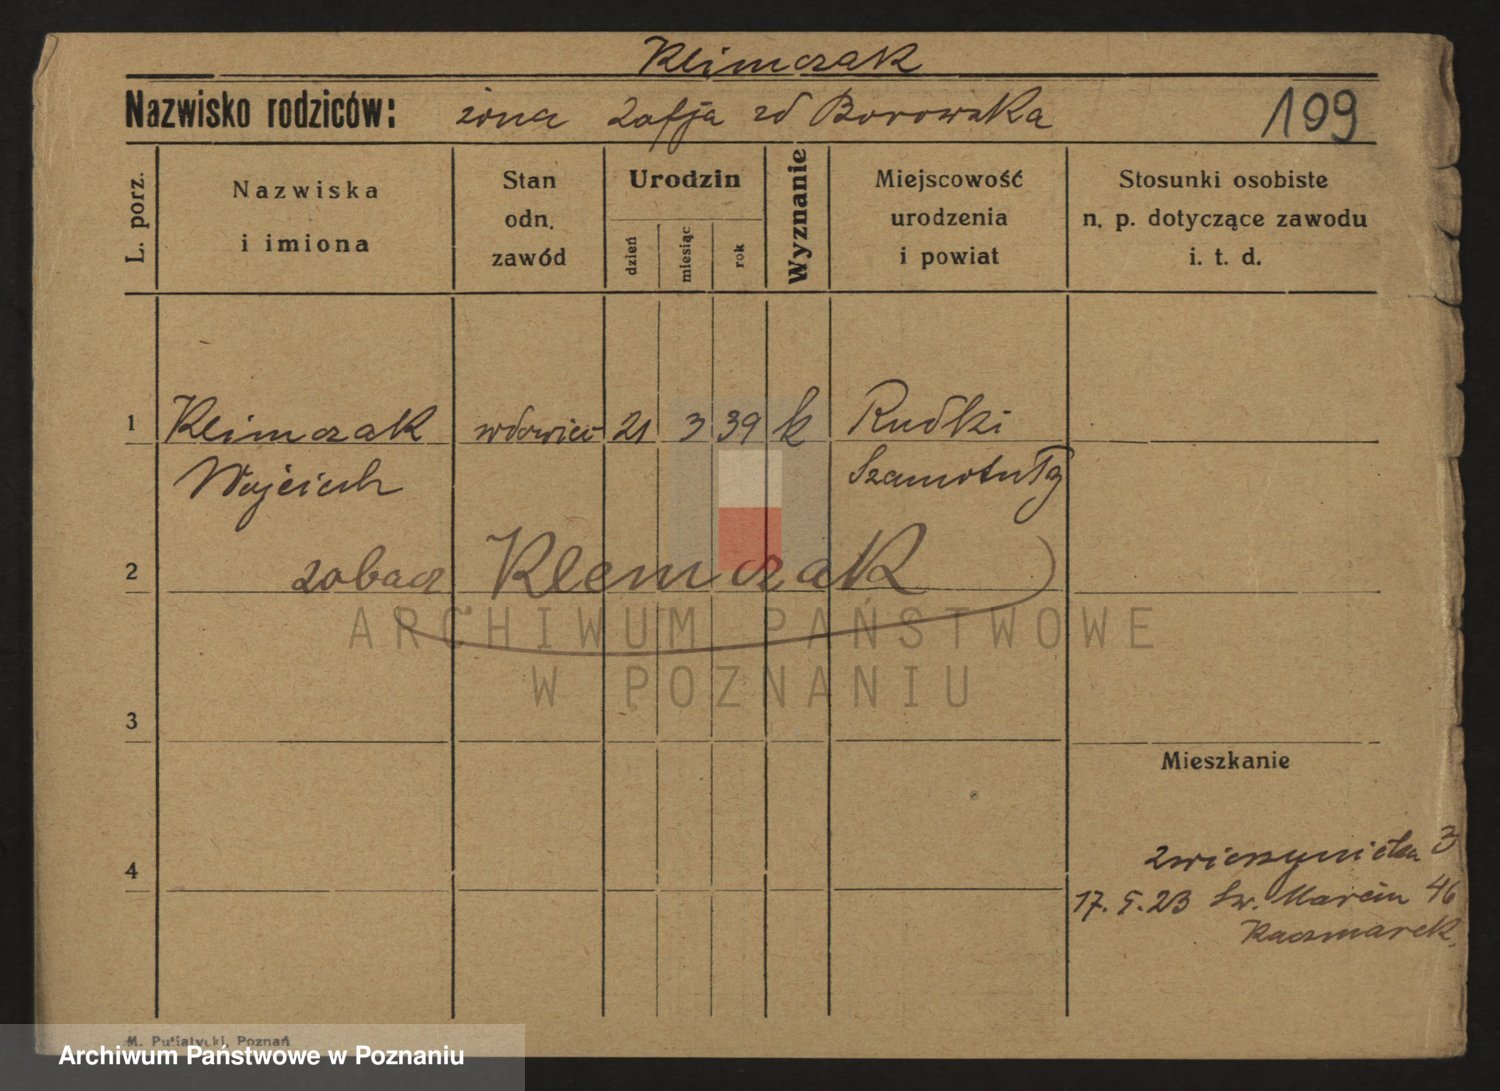 Klimczak
Nazwisko rodziców: żona Zofja zd Borowska
199
L. porz.
Nazwiska
i imiona
Stan
odn.
zawód
Urodzin
dzień
miesiąc
rok
Wyznanie
Miejscowość
urodzenia
i powiat
Stosunki osobiste
n. p. dotyczące zawodu
i. t. d.
1 Klimczak wdowiec 21 3 39 k Rudki
Wojciech Szamotuły
2 zobacz Klemczak
ARCHIWUM PAŃSTWOWE
W POZNANIU
3
Mieszkanie
4
Zwierzyniecka 3
17. 5. 23 Św. Marcin 46
Kaczmarek.
M. Putiatycki, Poznań
Archiwum Państwowe w Poznaniu